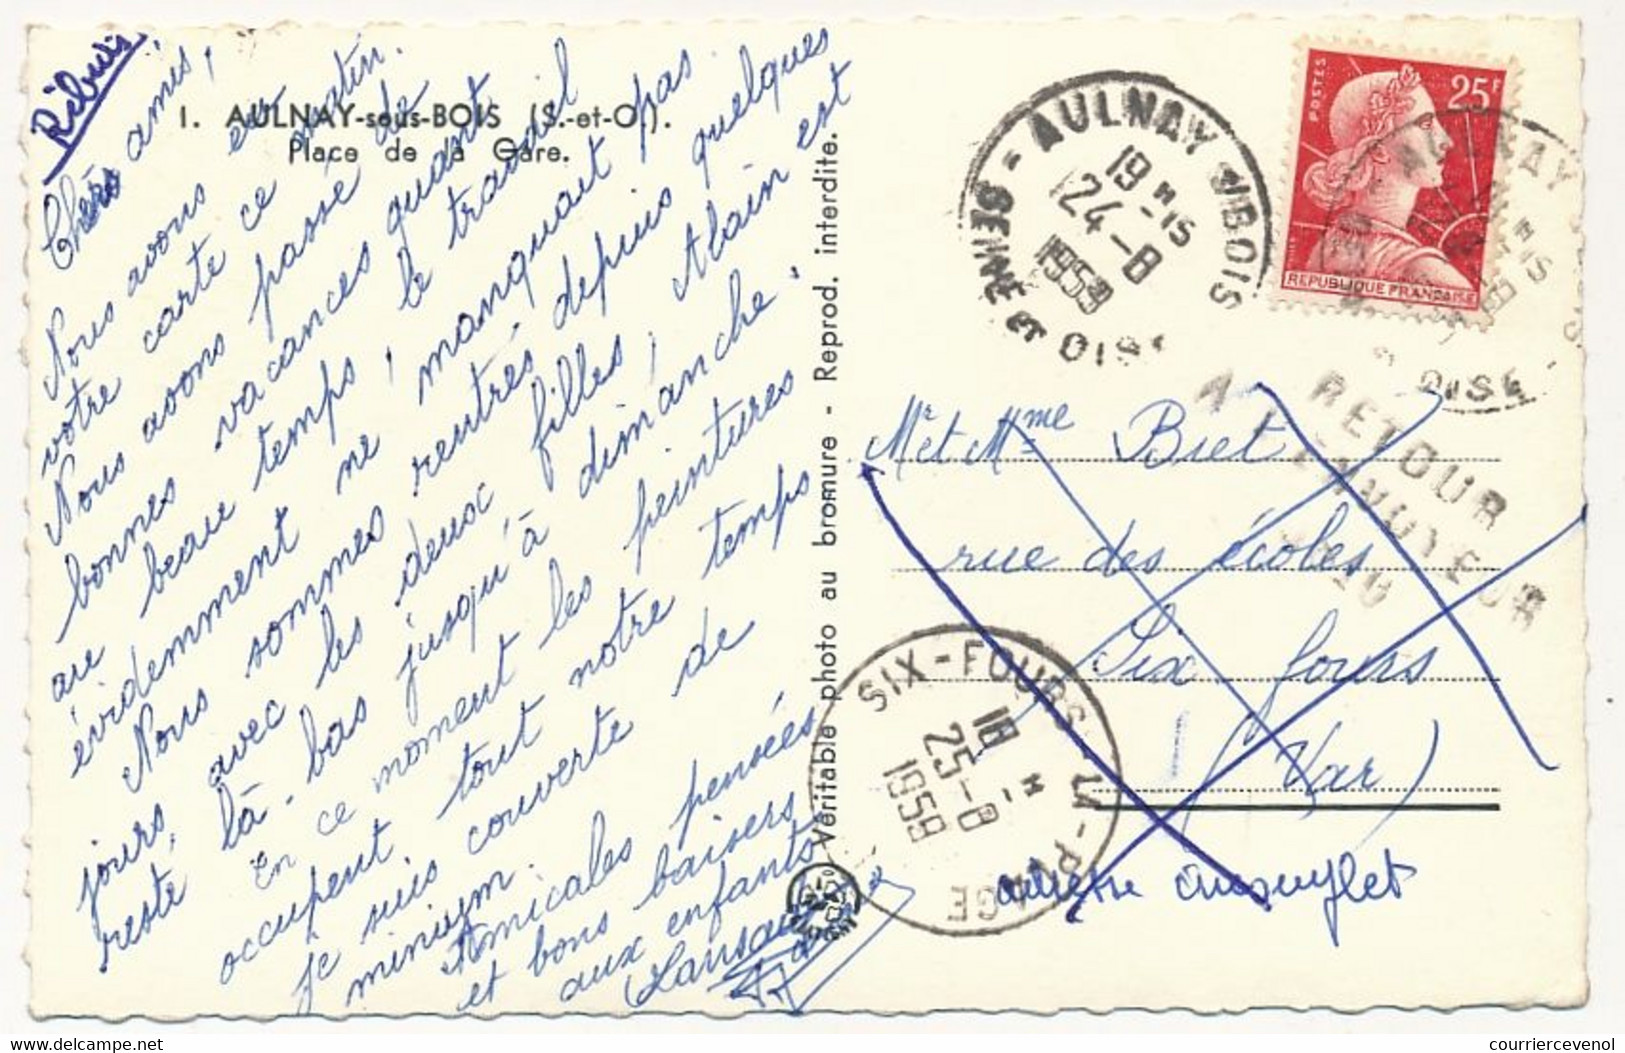 Rebuis
1. AULNAY-sous-BOIS (S.-et-O.).
Place de la Gare.
Chers amis,
Nous avons eu
votre carte ce matin.
Nous avons passé de
bonnes vacances quant
au beau temps, le travail
évidemment ne manquait pas.
Nous sommes rentrés depuis quelques
jours, avec les deux filles, Alain est
resté là-bas jusqu'à dimanche.
En ce moment les peintures
occupent tout notre temps
je suis couverte de
minium.
Amicales pensées
et bons baisers
aux enfants
Véritable photo au bromure - Reprod. interdite.
AULNAY S/BOIS
19 H 15
24-8
1959
SEINE ET OISE
POSTES
25F
REPUBLIQUE FRANÇAISE
AULNAY
OISE
RETOUR
A L'ENVOYEUR
Mr et Mme Biet
rue des écoles
Six fours
(Var)
SIX-FOURS-LA-PLAGE
18 H
25-8
1959
adresse
courriercevenol